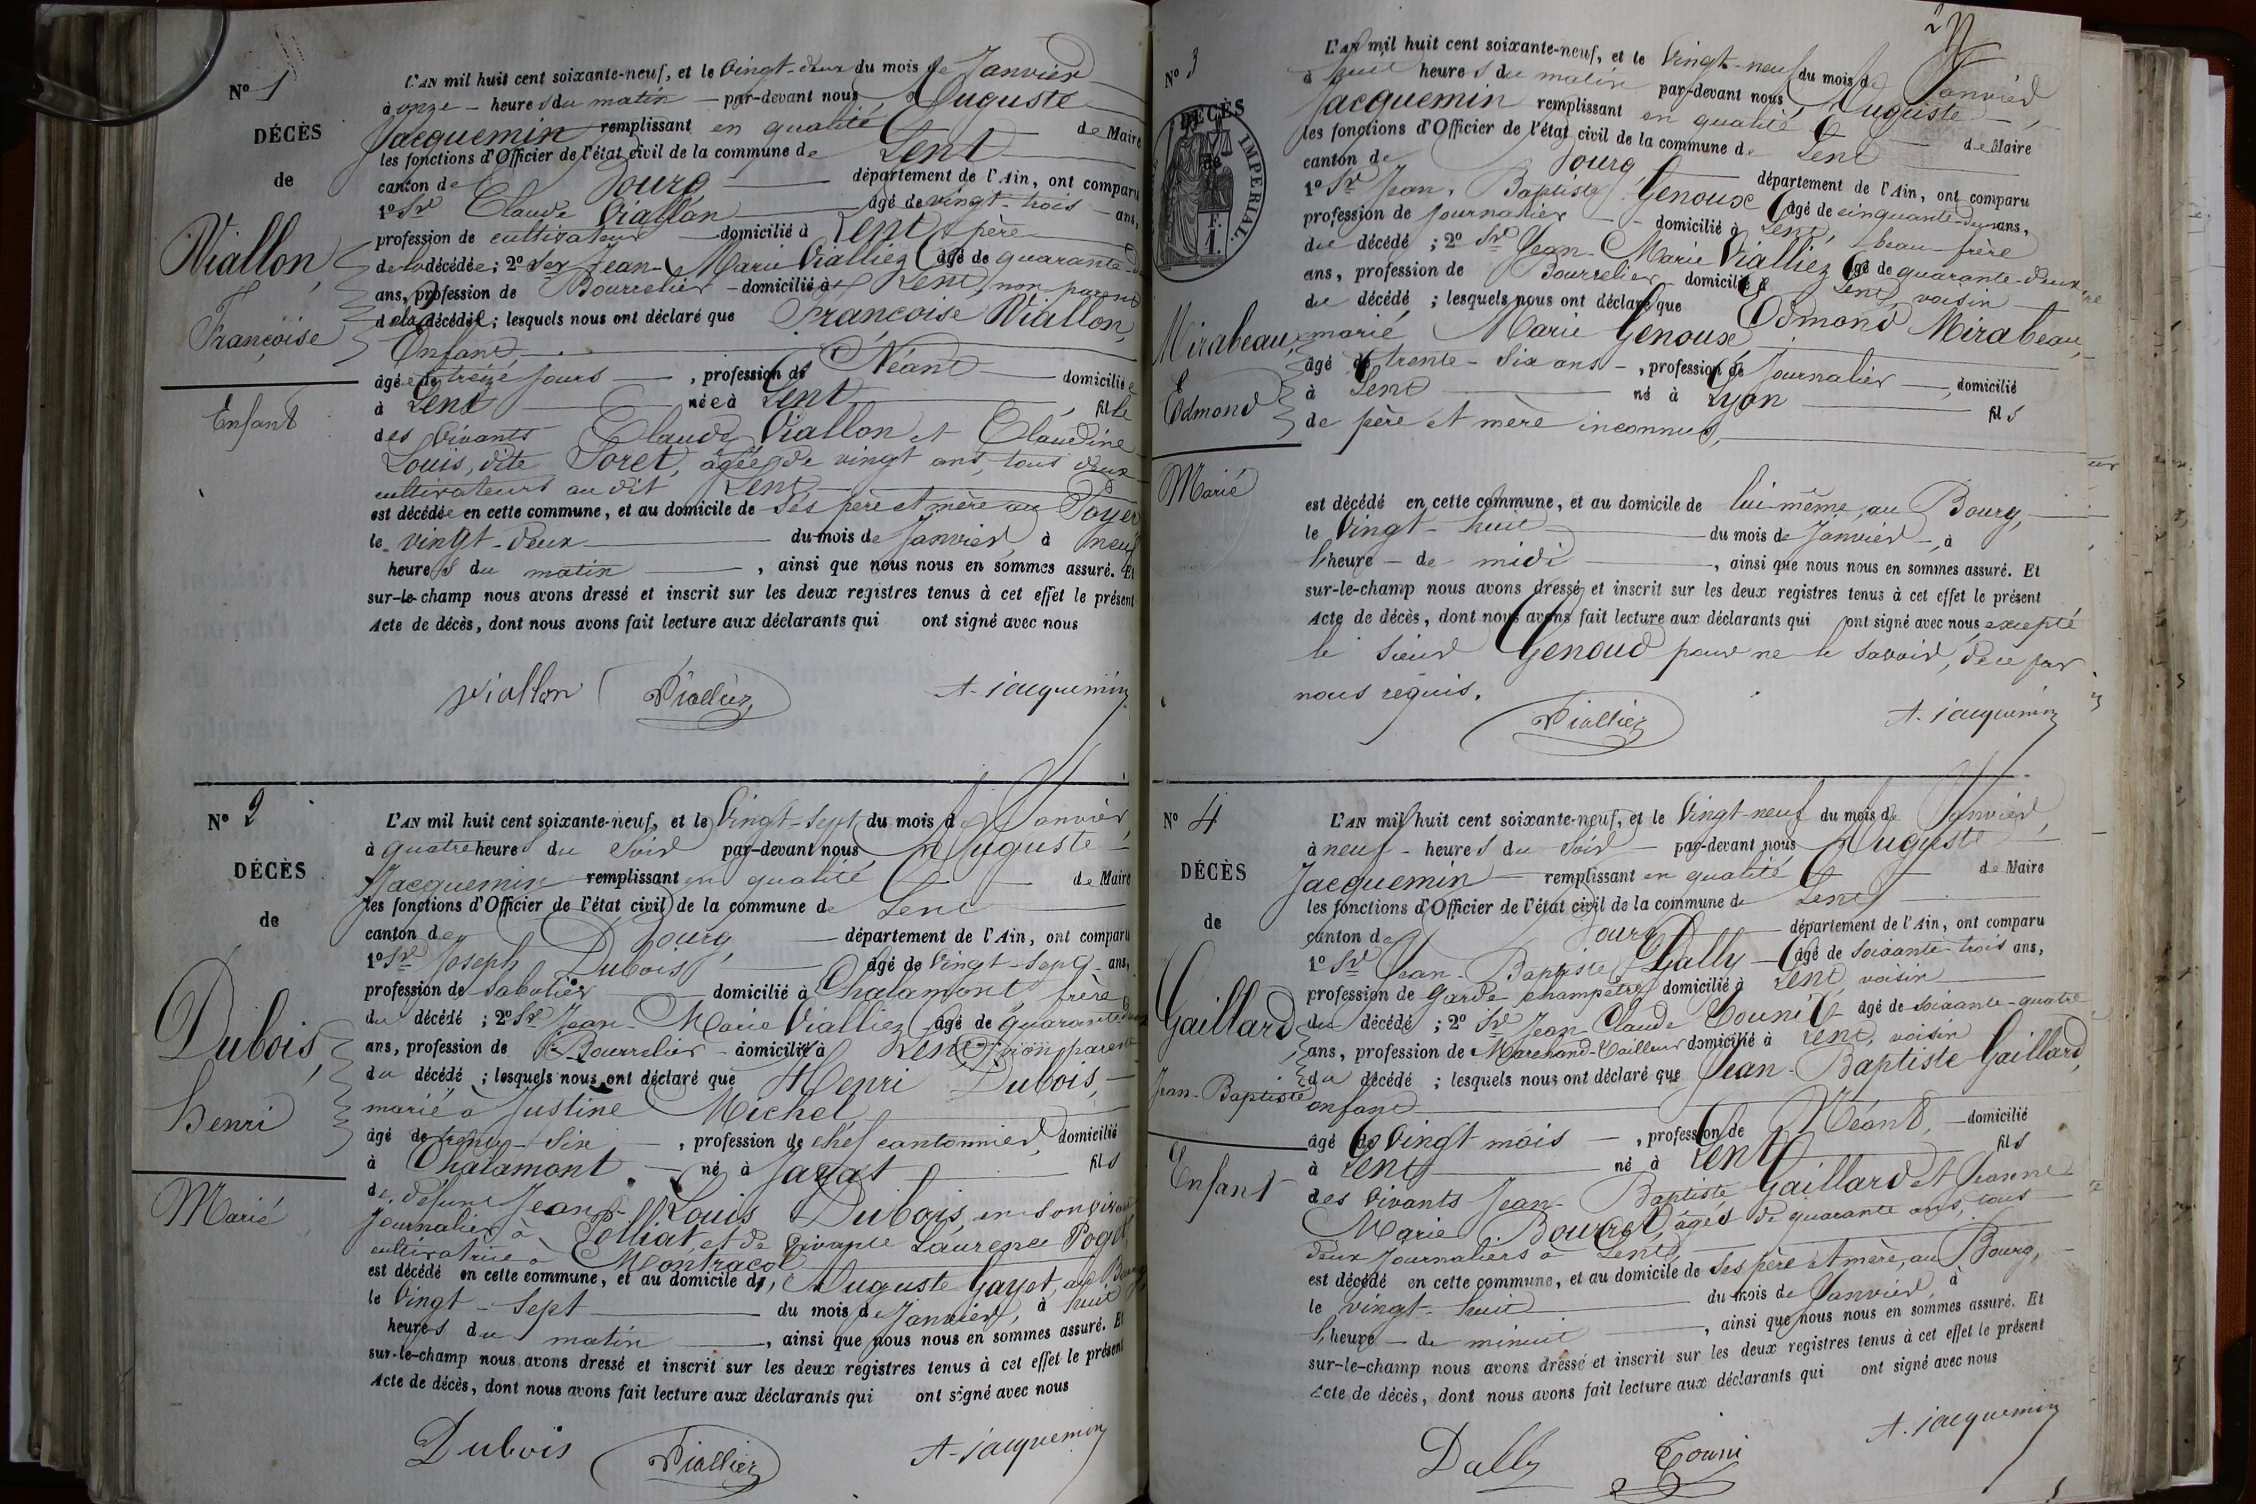 Nº 1
DÉCÈS
de
Viallon,
Françoise
Enfant
L'AN mil huit cent soixante-neuf, et le vingt-deux du mois de Janvier
à onze heures du matin par-devant nous, Auguste
Jacquemin remplissant en qualité de Maire
les fonctions d'Officier de l'état civil de la commune de Lent
canton de Bourg département de l'Ain, ont comparu
1º Sr Claude Viallon âgé de vingt-trois ans,
profession de cultivateur domicilié à Lent, père
de la décédée; 2º Sr Jean-Marie Viallier âgé de quarante-
ans, profession de Bourrelier domicilié à Lent, non parent
de la décédée; lesquels nous ont déclaré que Françoise Viallon,
Enfant,
âgée de treize jours, profession de Néant domiciliée
à Lent née à Lent, fille
des vivants Claude Viallon et Claudine
Louis, dite Soret, âgée de vingt ans, tous deux
cultivateurs au dit Lent
est décédée en cette commune, et au domicile de ses père et mère au
le vingt-deux du mois de Janvier, à neuf
heures du matin, ainsi que nous nous en sommes assuré. Et
sur-le-champ nous avons dressé et inscrit sur les deux registres tenus à cet effet le présent
Acte de décès, dont nous avons fait lecture aux déclarants qui ont signé avec nous
Viallon Viallier A. Jacquemin
Nº 2
DÉCÈS
de
Dubois,
Henri
Marié
L'AN mil huit cent soixante-neuf, et le vingt-sept du mois de Janvier,
à quatre heures du soir par-devant nous, Auguste
Jacquemin remplissant en qualité de Maire
les fonctions d'Officier de l'état civil de la commune de Lent
canton de Bourg, département de l'Ain, ont comparu
1º Sr Joseph Dubois, âgé de vingt-sept ans,
profession de sabotier domicilié à Chalamont, frère
du décédé; 2º Sr Jean-Marie Viallier âgé de quarante-
ans, profession de Bourrelier domicilié à Lent, non parent
du décédé; lesquels nous ont déclaré que Henri Dubois,
marié à Justine Michel,
âgé de trente-six, profession de chef cantonnier, domicilié
à Chalamont, né à Jayat fils
de défunt Jean-Louis Dubois, en son vivant
journalier à Polliat, et de vivante Laurence
cultivatrice à Montracol
est décédé en cette commune, et au domicile de, Auguste Gayet, au Bourg,
le vingt-sept du mois de Janvier, à huit
heures du matin, ainsi que nous nous en sommes assuré. Et
sur-le-champ nous avons dressé et inscrit sur les deux registres tenus à cet effet le présent
Acte de décès, dont nous avons fait lecture aux déclarants qui ont signé avec nous
Dubois Viallier A. Jacquemin
2
Nº 3
DÉCÈS
de
IMPERIAL.
F.
1
Mirabeau,
Edmond
Marié
L'AN mil huit cent soixante-neuf, et le vingt-neuf du mois de Janvier
à huit heures du matin par-devant nous, Auguste
Jacquemin remplissant en qualité de Maire
les fonctions d'Officier de l'état civil de la commune de Lent
canton de Bourg département de l'Ain, ont comparu
1º Sr Jean-Baptiste Genoux âgé de cinquante-deux ans,
profession de journalier domicilié à Lent, beau-frère
du décédé; 2º Sr Jean-Marie Viallier âgé de quarante-deux
ans, profession de Bourrelier domicilié à Lent, voisin
du décédé; lesquels nous ont déclaré que Edmond Mirabeau,
marié Marie Genoux
âgé de trente-six ans, profession de journalier, domicilié
à Lent né à Lyon fils
de père et mère inconnus,
est décédé en cette commune, et au domicile de lui-même, au Bourg,
le vingt-huit du mois de Janvier, à
l'heure de midi, ainsi que nous nous en sommes assuré. Et
sur-le-champ nous avons dressé et inscrit sur les deux registres tenus à cet effet le présent
Acte de décès, dont nous avons fait lecture aux déclarants qui ont signé avec nous excepté
le sieur Genoud pour ne le savoir, de ce par
nous requis.
Viallier A. Jacquemin
Nº 4
DÉCÈS
de
Gaillard
Jean-Baptiste
Enfant
L'AN mil huit cent soixante-neuf, et le vingt-neuf du mois de Janvier,
à neuf heures du soir par-devant nous Auguste
Jacquemin remplissant en qualité de Maire
les fonctions d'Officier de l'état civil de la commune de Lent
canton de Bourg département de l'Ain, ont comparu
1º Sr Jean-Baptiste Dally âgé de soixante-trois ans,
profession de garde champêtre domicilié à Lent, voisin
du décédé; 2º Sr Jean-Claude Touni âgé de soixante-quatre
ans, profession de Marchand-Tailleur domicilié à Lent, voisin
du décédé; lesquels nous ont déclaré que Jean-Baptiste Gaillard,
enfant
âgé de vingt mois, profession de Néant, domicilié
à Lent né à Lent fils
des vivants Jean-Baptiste Gaillard et Jeanne
Marie Bourret, âgés de quarante ans, tous
deux journaliers à Lent,
est décédé en cette commune, et au domicile de ses père et mère, au Bourg,
le vingt-huit du mois de Janvier, à
l'heure de minuit, ainsi que nous nous en sommes assuré. Et
sur-le-champ nous avons dressé et inscrit sur les deux registres tenus à cet effet le présent
Acte de décès, dont nous avons fait lecture aux déclarants qui ont signé avec nous
Dally Touni A. Jacquemin